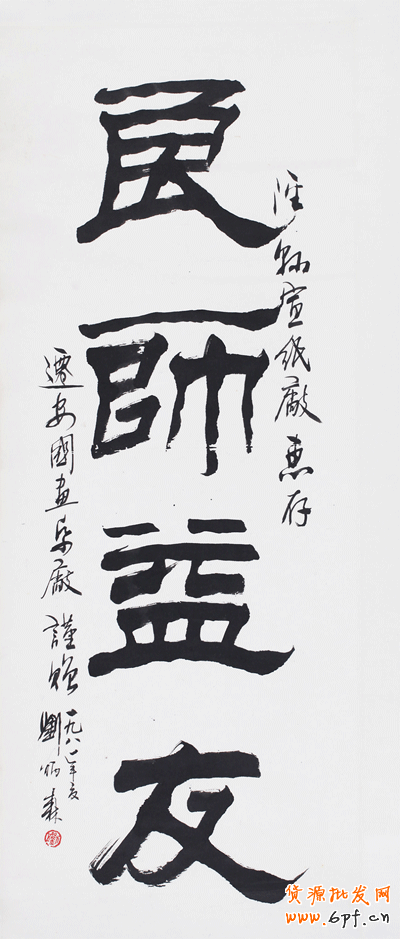 涇縣宣紙廠惠存
良師益友
遷安國畫帋廠謹贈
一九八一年夏
劉炳森
货源批发网
www.6pf.cn